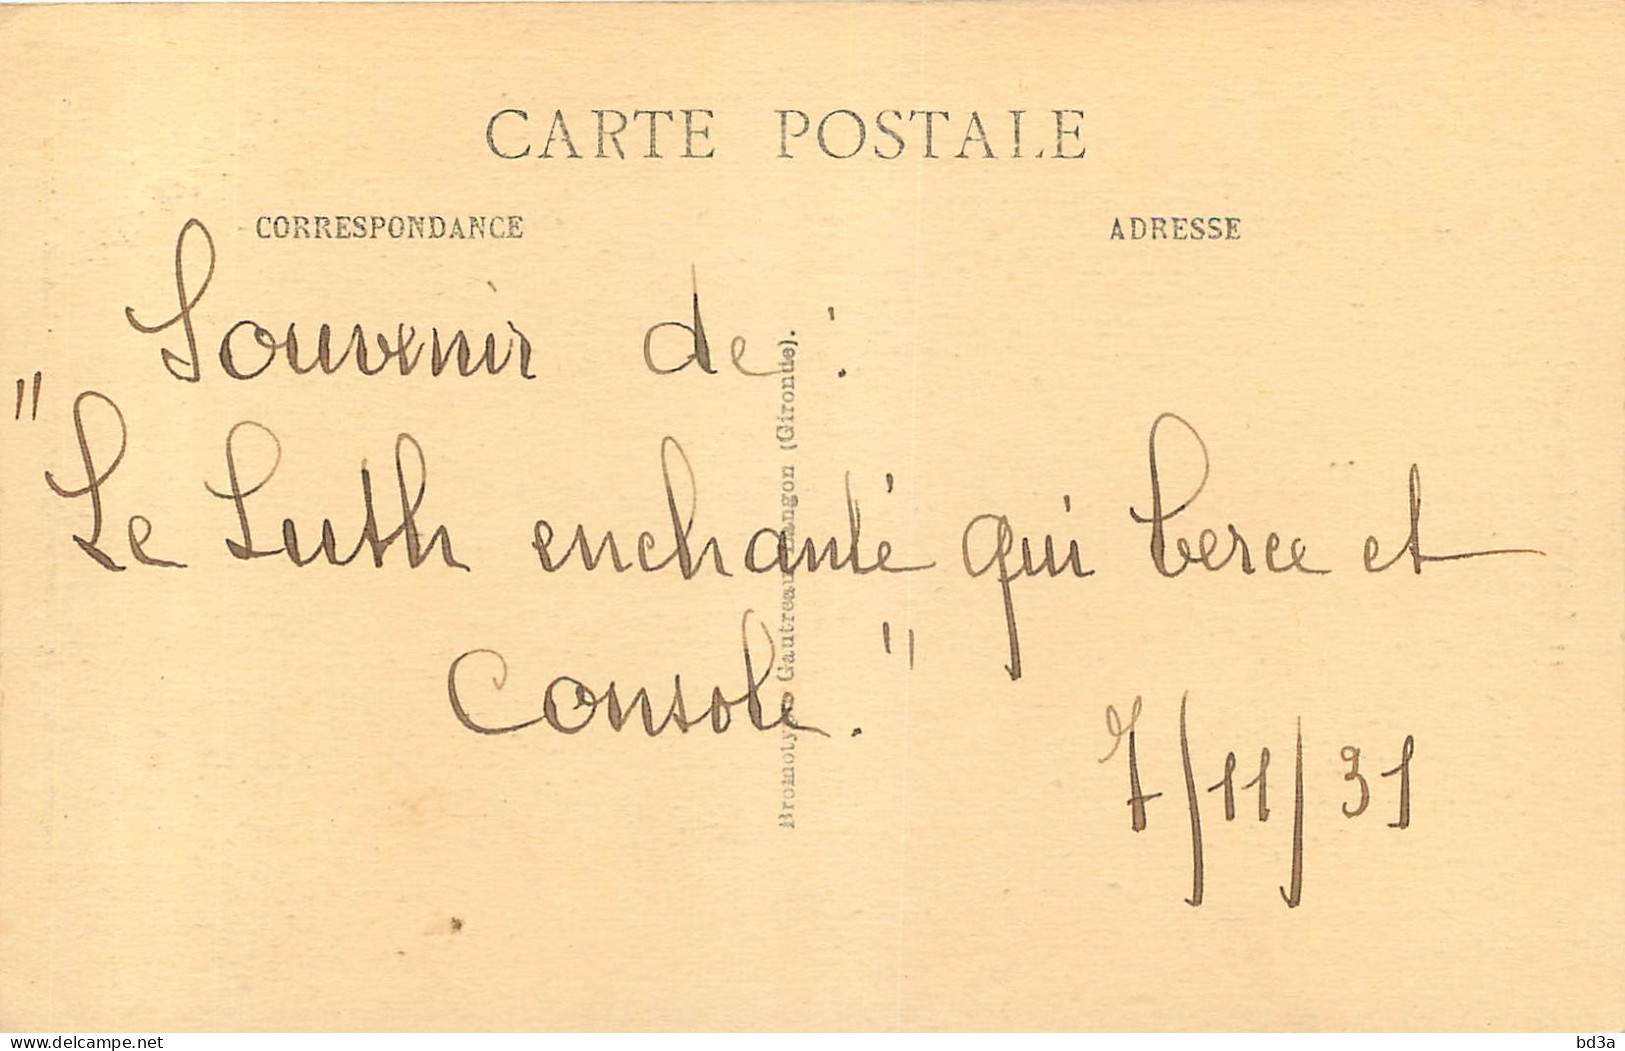 CARTE POSTALE
CORRESPONDANCE
ADRESSE
Souvenir de :
"Le Luth enchanté qui berce et
Console."
7/11/31
Bromotypie Gautreau Langon (Gironde).
delcampe.net
bd3a